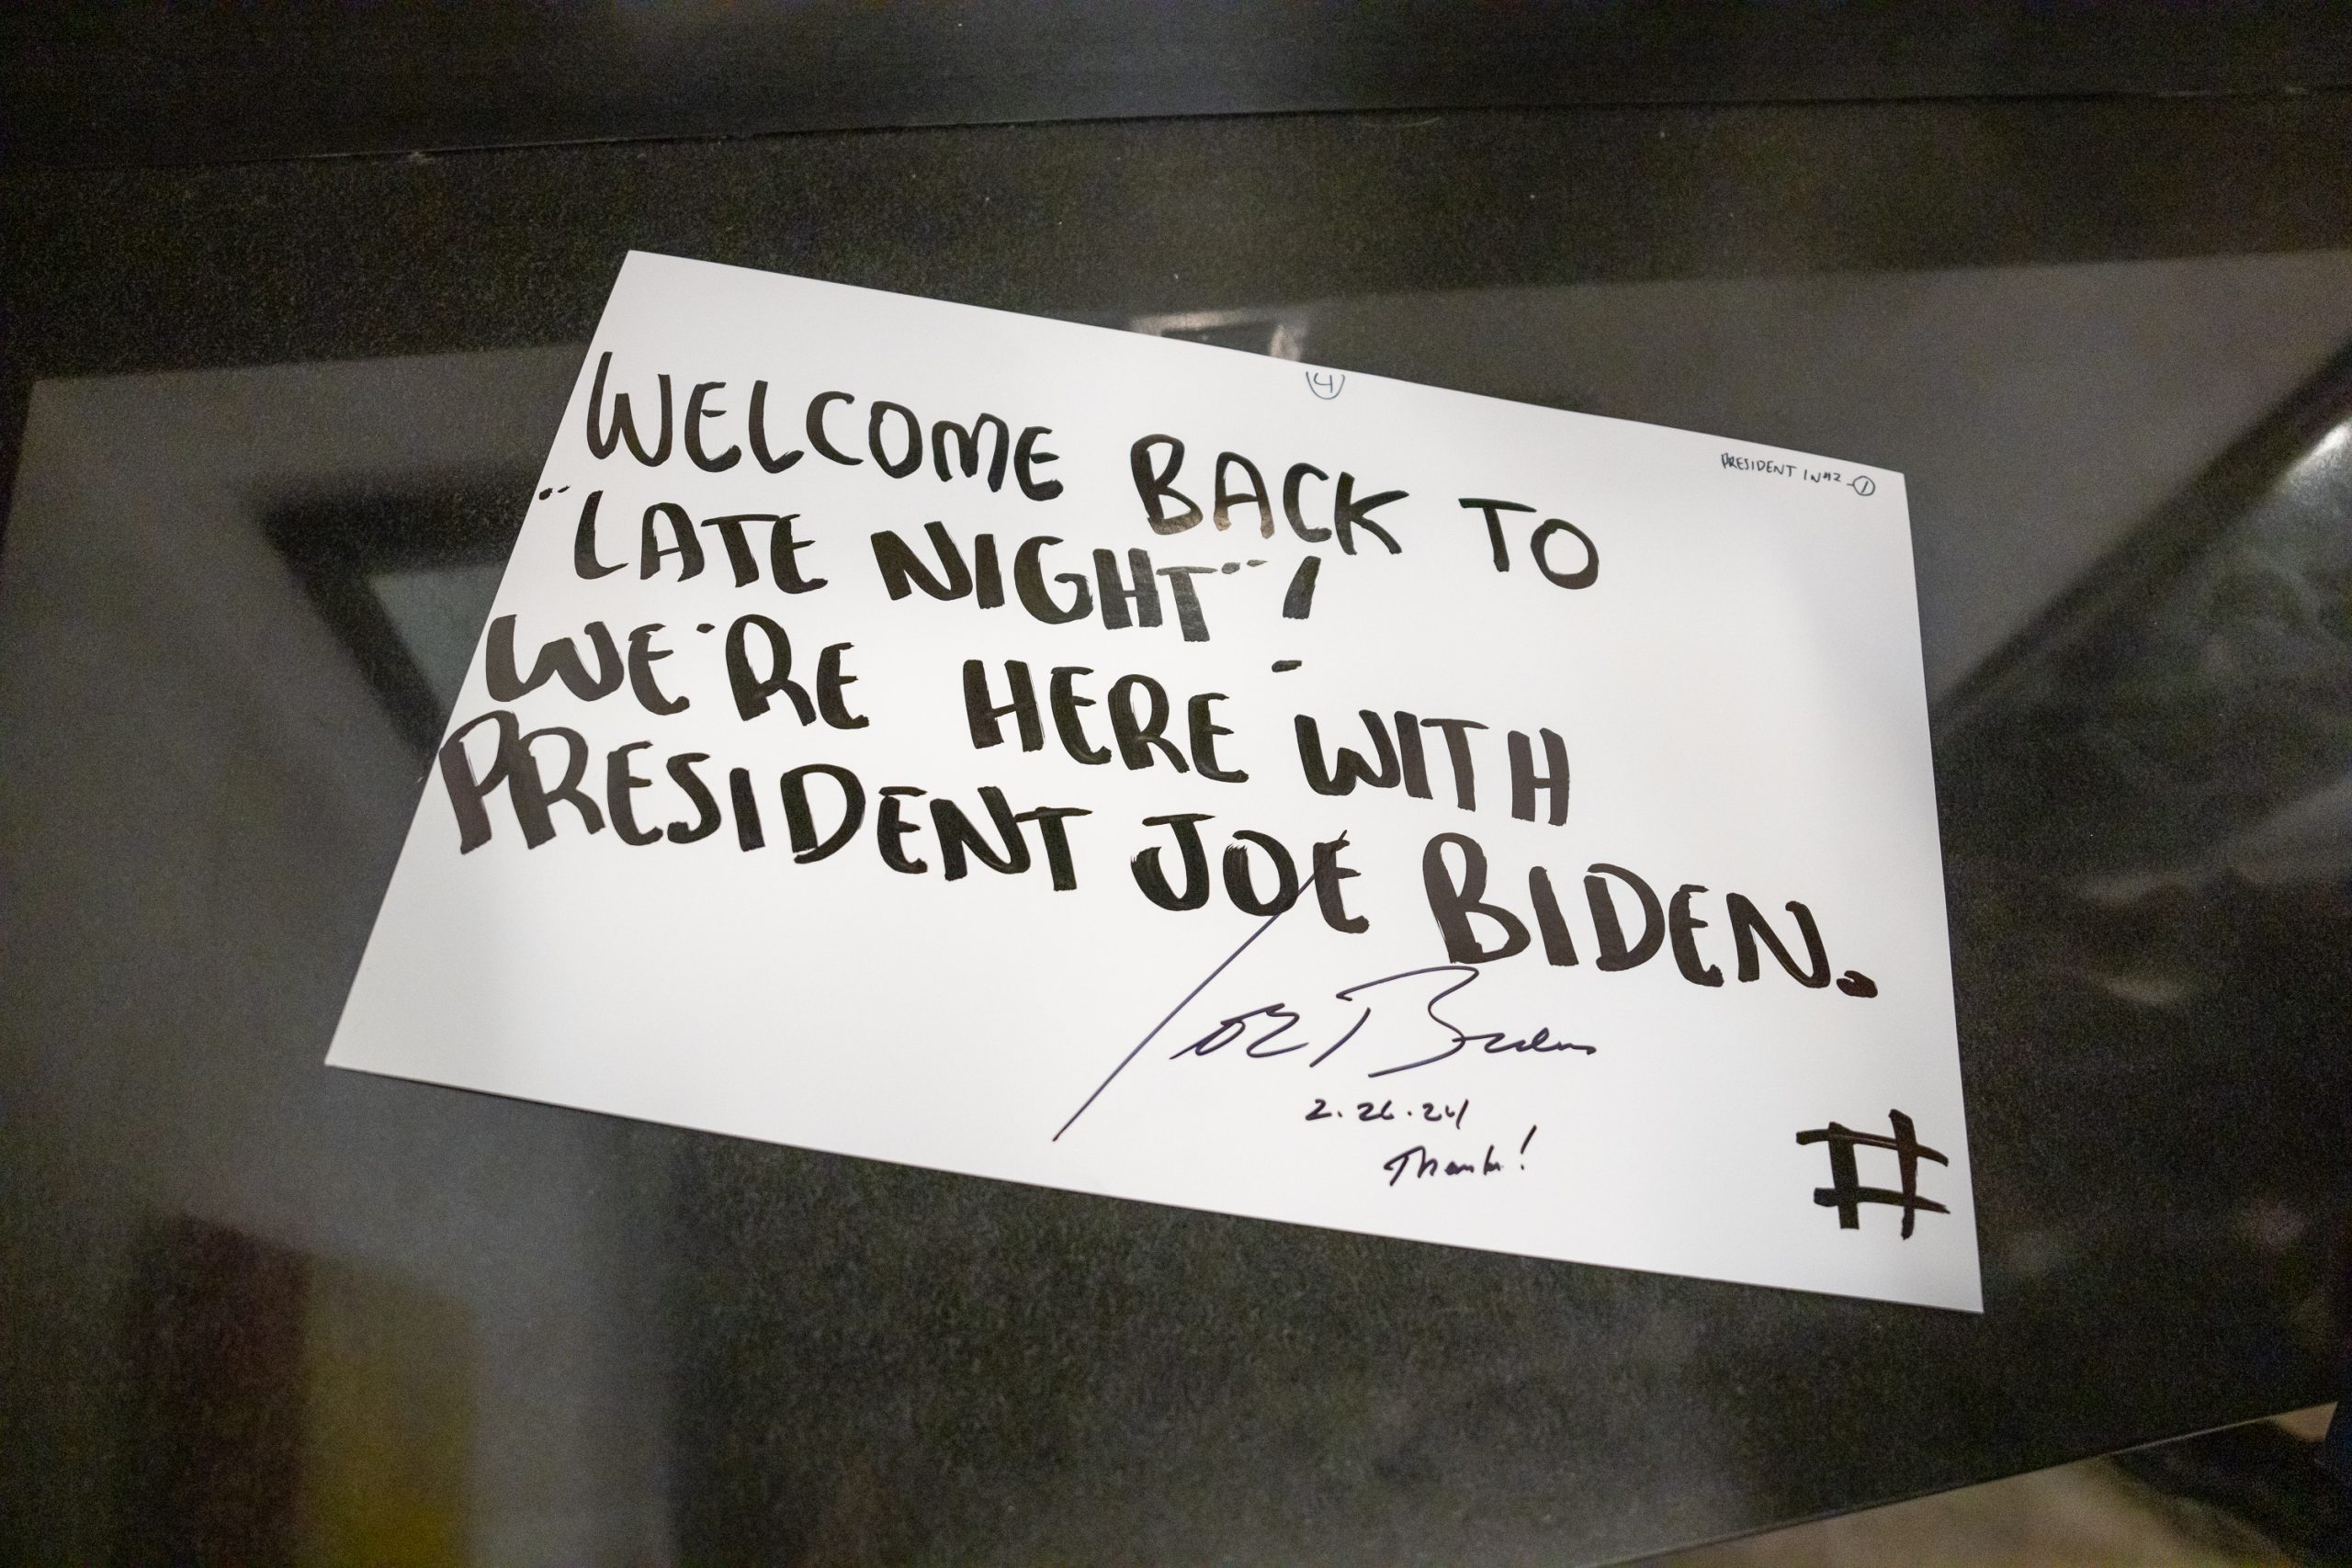 4
PRESIDENT IN#2 - 1
WELCOME BACK TO
"LATE NIGHT"!
WE'RE HERE WITH
PRESIDENT JOE BIDEN.
Joe Biden
2.26.24
Thanks!
#